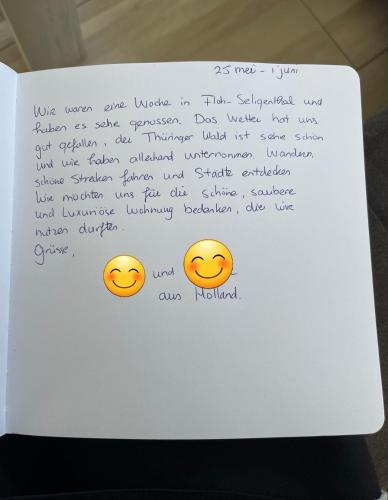 25 mei - 1 juni
Wie waren eine Woche in Floh-Seligenthal und
haben es sehe genossen. Das Wetter hat uns
gut gefallen, der Thüringer Wald ist sehe schön
und wie haben allerhand unternommen. Wandern,
schöne Strecken fahren und Städte entdecken.
Wie mochten uns für die schöne, saubere
und Luxuriöse Wohnung bedanken, die wie
nutzen durften.
Grüsse,
und
aus Holland.